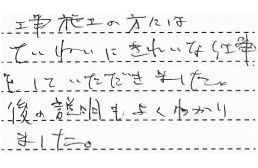 工事施工の方には
ていねいにきれいな仕事
をしていただきました。
後の説明もよくわかり
ました。